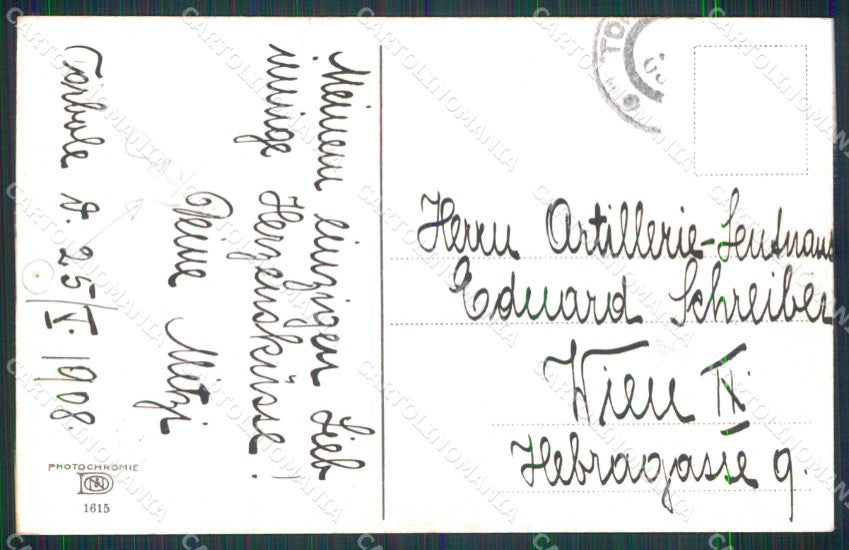 Meinem einzigen Lieb
innige Herzensküsse!
Deine Mitzi
Torbole d. 25/V. 1908.
Herrn Artillerie-Leutnant
Eduard Schreiber
Wien IX.
Hebragasse 9.
PHOTOCHROMIE
1615
TOR
CARTOLINOMANIA